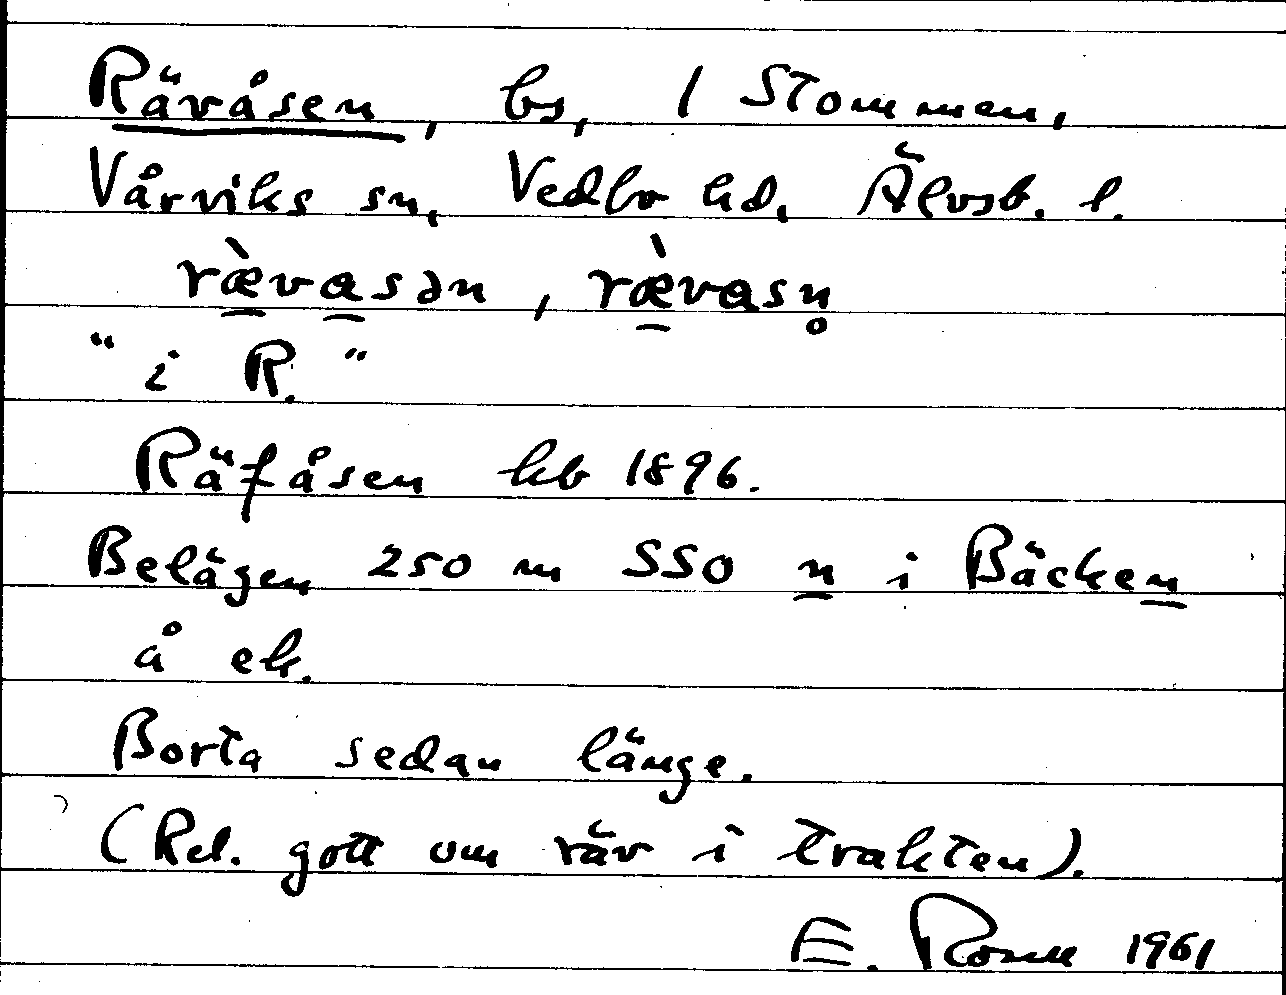 Rävåsen, bs, 1 Stommen,
Vårviks sn, Vedbo hd, Älvsb. l.
ræ̀vasən, ræ̀vasn̥
"i R."
Räfåsen kb 1896.
Belägen 250 m SSO n i Bäcken
å ek.
Borta sedan länge.
(Rel. gott om räv i trakten).
E. 1961